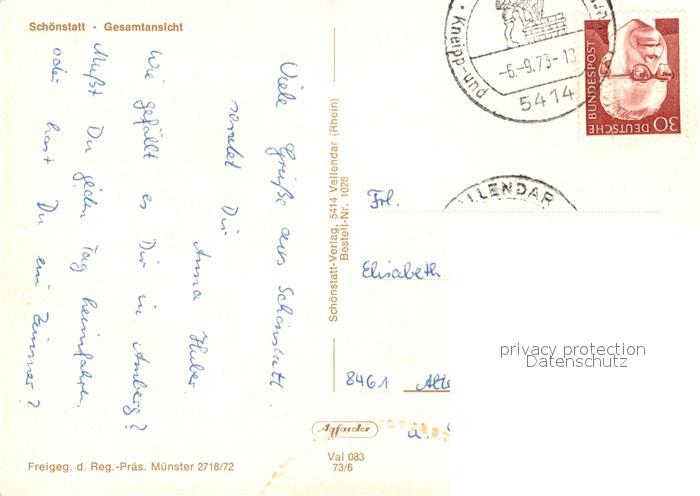 Schönstatt - Gesamtansicht
Viele Grüße aus Schönstatt
sendet Dir
Anna Huber.
Wie gefällt es Dir in Amberg?
Mußt Du jeden Tag heimfahren
oder hast Du ein Zimmer?
Schönstatt-Verlag, 5414 Vallendar (Rhein)
Bestell-Nr. 1026
Kneipp-und
-6.-9.73-13
5414
DEUTSCHE BUNDESPOST
30
LLENDAR
Frl.
Elisabeth
privacy protection
Datenschutz
8461 Alte
Agfacolor
Freigeg. d. Reg.-Präs. Münster 2718/72
Val 083
73/6